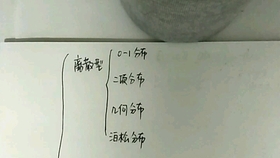 离散型
0-1分布
二项分布
几何分布
泊松分布